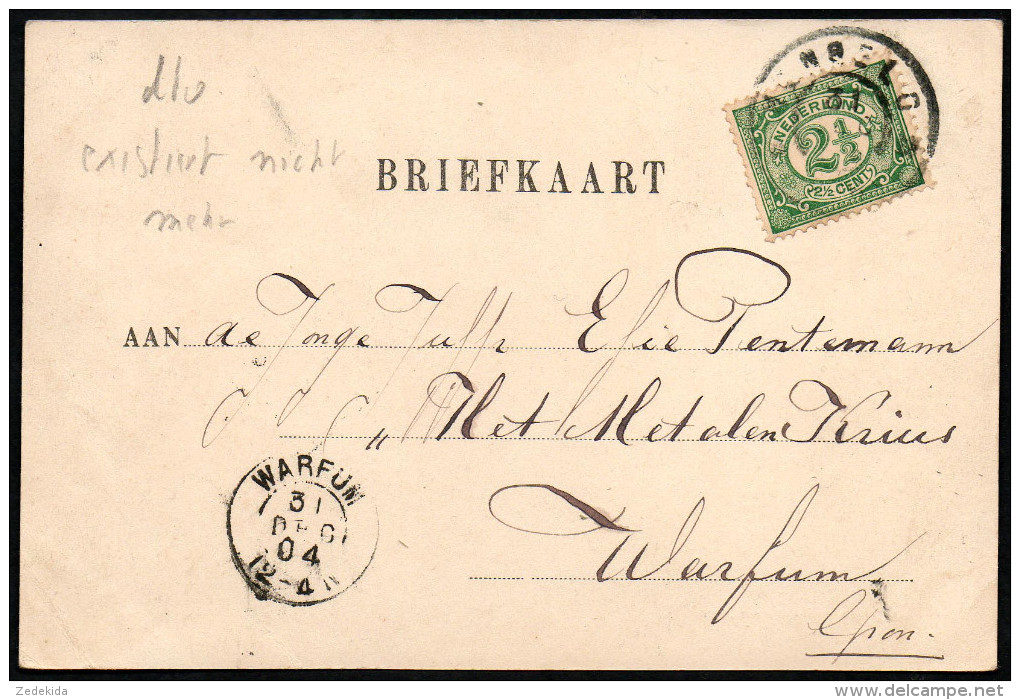 existiert nicht
mehr
BRIEFKAART
NEDERLAND
2½
2½ CENT
31
AAN de Jonge Juffr Efie Pentemann
„Het Metalen Kruis
WARFUM
31
DEC
04
12-4N
Warfum
Gron.
Zedekida
www.delcampe.net